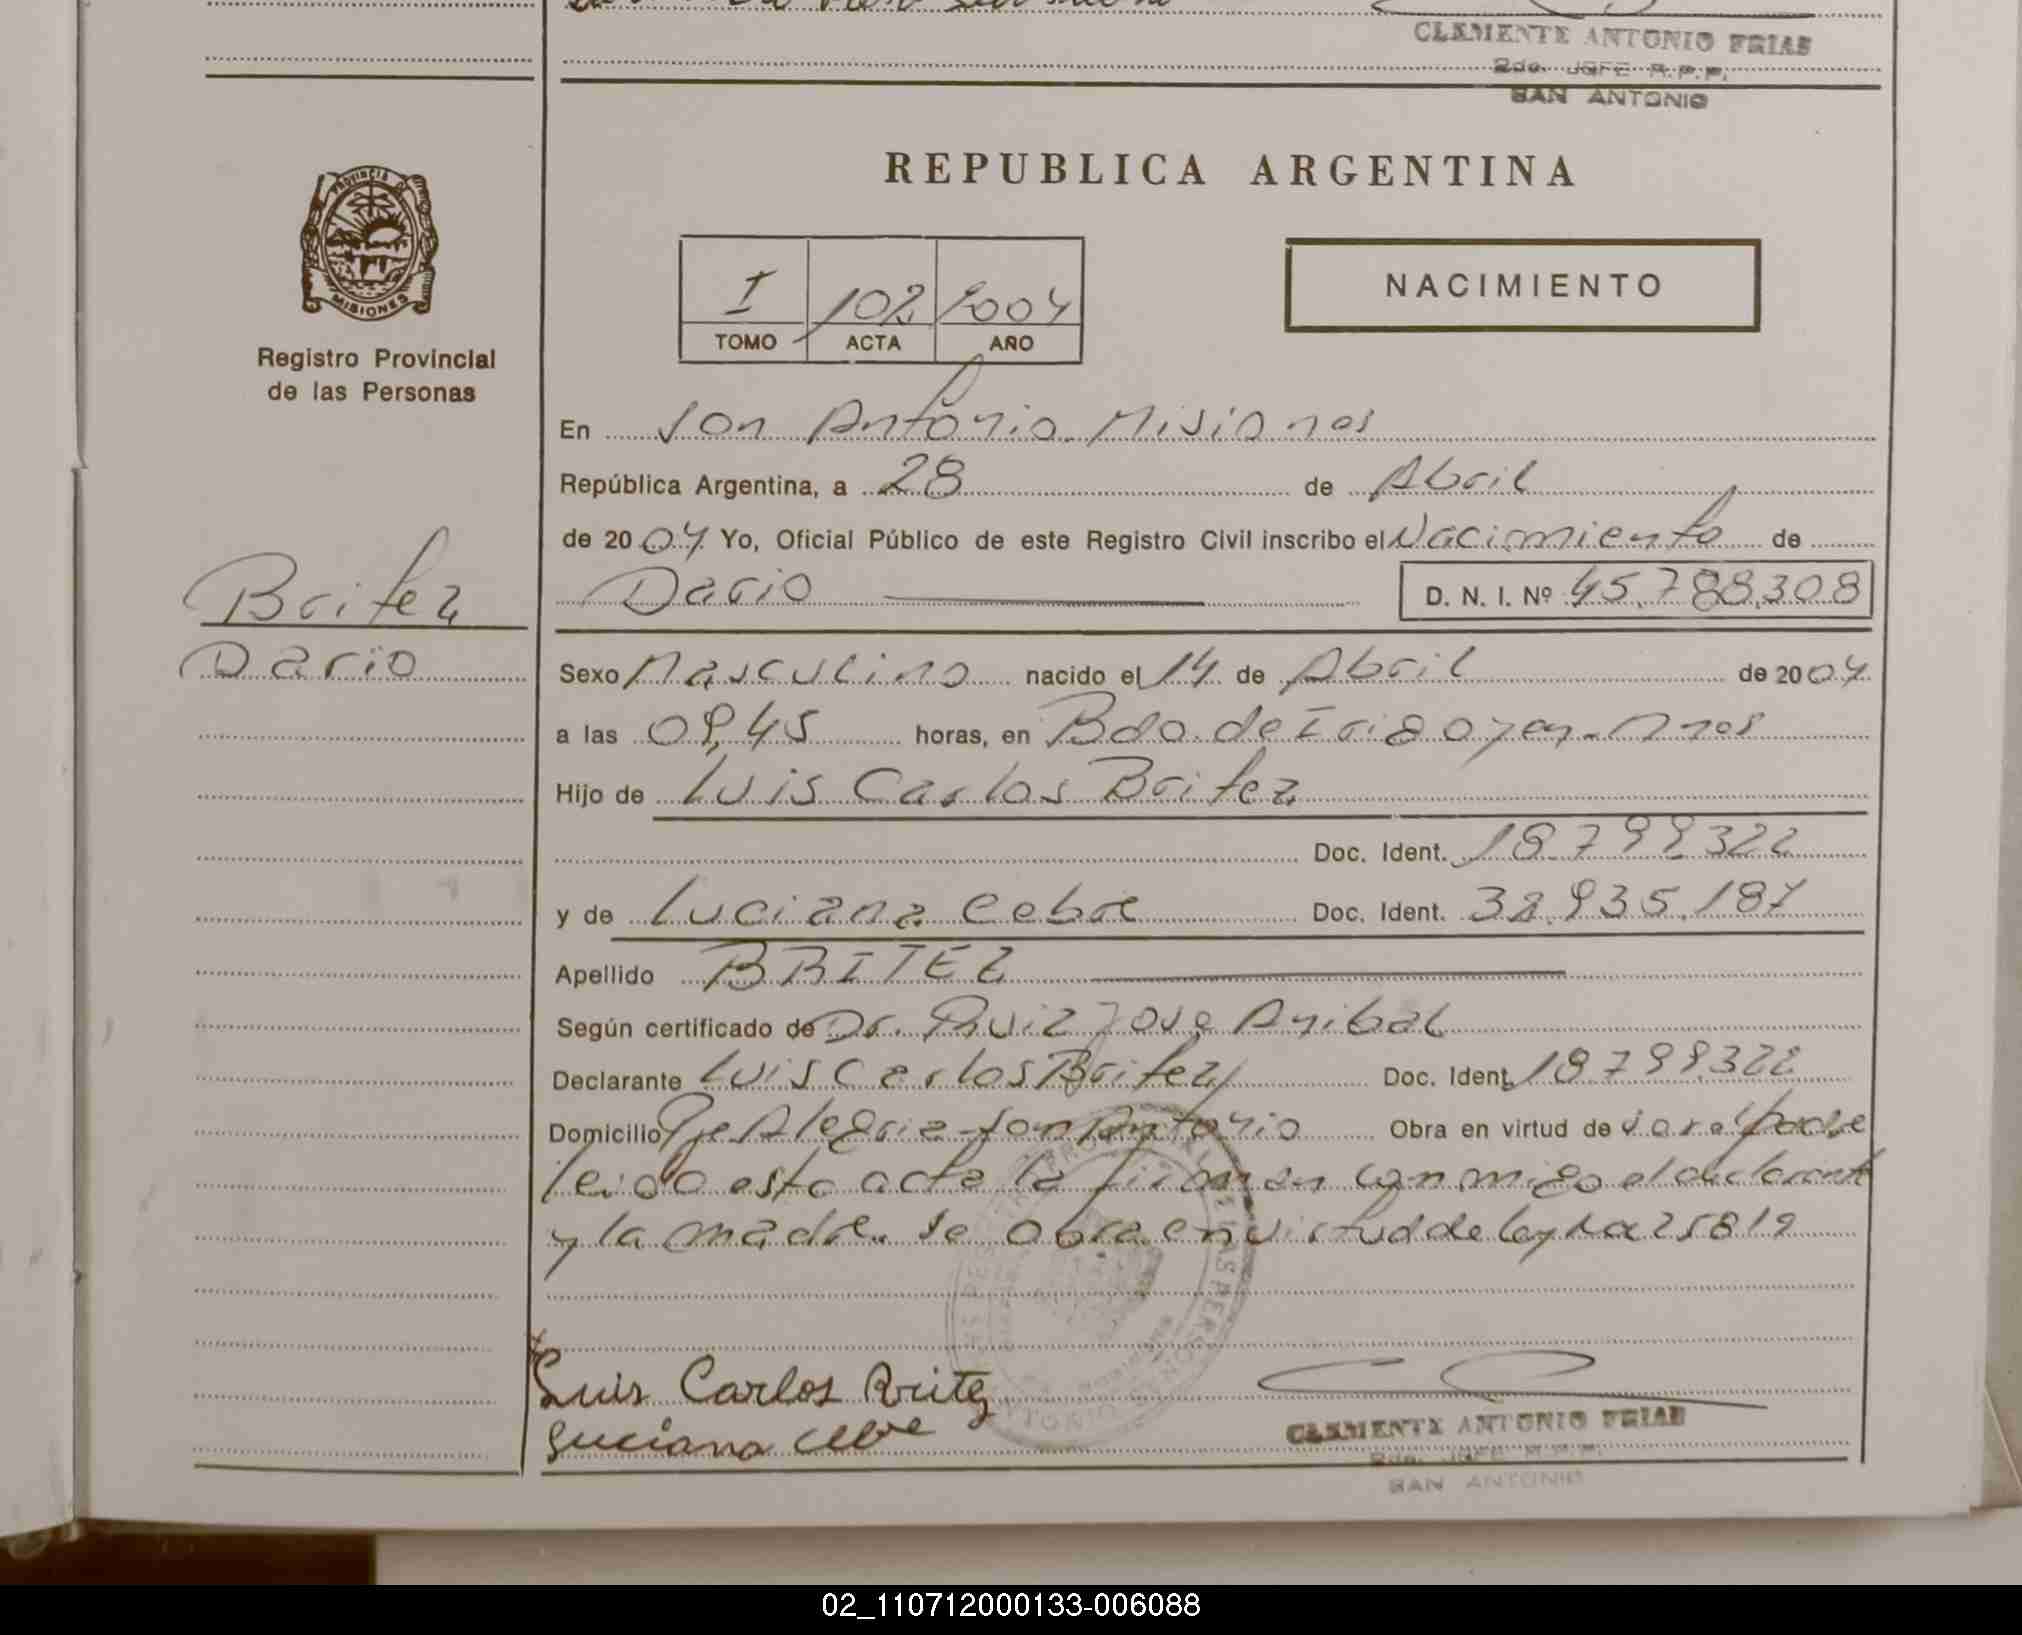 CLEMENTE ANTONIO FRIAS
2do. JEFE R.P.P.
SAN ANTONIO
REPUBLICA ARGENTINA
PROVINCIA DE
MISIONES
Registro Provincial
de las Personas
I 102 2004
TOMO ACTA AÑO
NACIMIENTO
En San Antonio Misiones
República Argentina, a 28 de Abril
de 2004 Yo, Oficial Público de este Registro Civil inscribo el Nacimiento de
Dario D. N. I. Nº 45.788.308
Britez
Dario
Sexo Masculino nacido el 14 de Abril de 2004
a las 09,45 horas, en Bdo. de Irigoyen - Mnes
Hijo de Luis Carlos Britez
Doc. Ident. 18.799.322
y de Luciana Cebre Doc. Ident. 32.935.187
Apellido BRITEZ
Según certificado de Dr. Ruiz Jose Anibal
Declarante Luis Carlos Britez Doc. Ident. 18.799.322
Domicilio Pje Alegria - San Antonio Obra en virtud de ser el padre
leido esta acta la firman conmigo el declarante
y la madre. se obra en virtud de ley No 25819
Luis Carlos Britez
Luciana Cebre
CLEMENTE ANTONIO FRIAS
2do. JEFE R.P.P.
SAN ANTONIO
02_110712000133-006088